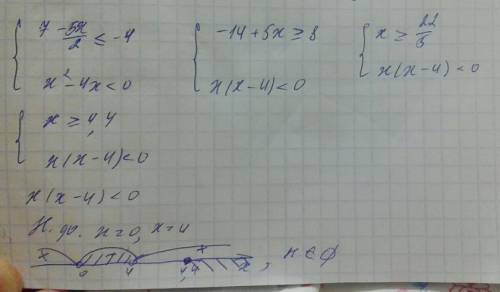 { 7 - 5x/2 ≤ -4
x² - 4x < 0
{ -14 + 5x ≥ 8
x(x-4) < 0
{ x ≥ 22/5
x(x-4) < 0
{ x ≥ 4,4
x(x-4) < 0
x(x-4) < 0
Н.ф. x=0, x=4
+ 0 4 + 4,4 x , x ∈ ∅